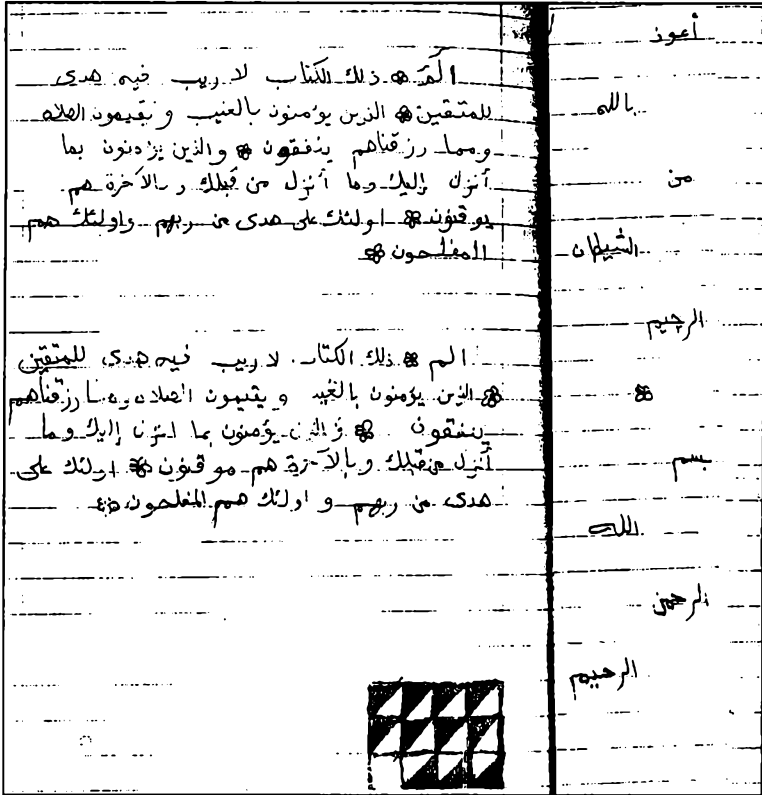 أعوذ
بالله
من
الشيطان
الرجيم
بسم
الله
الرحمن
الرحيم
الٓمٓ ❀ ذلك الكتاب لا ريب فيه هدى
للمتقين ❀ الذين يؤمنون بالغيب و يقيمون الصلاه
ومما رزقناهم ينفقون ❀ والذين يؤمنون بما
أنزل إليك وما أنزل من قبلك و بالآخرة هم
يوقنون ❀ اولئك على هدى من ربهم واولئك هم
المفلحون ❀
الم ❀ ذلك الكتاب لا ريب فيه هدى للمتقين
❀ الذين يؤمنون بالغيب و يقيمون الصلاه رزقناهم
ينفقون ❀ والذين يؤمنون بما انزل إليك وما
أنزل من قبلك وبالآخرة هم موقنون ❀ اولئك على
هدى من ربهم و اولئك هم المفلحون ❀